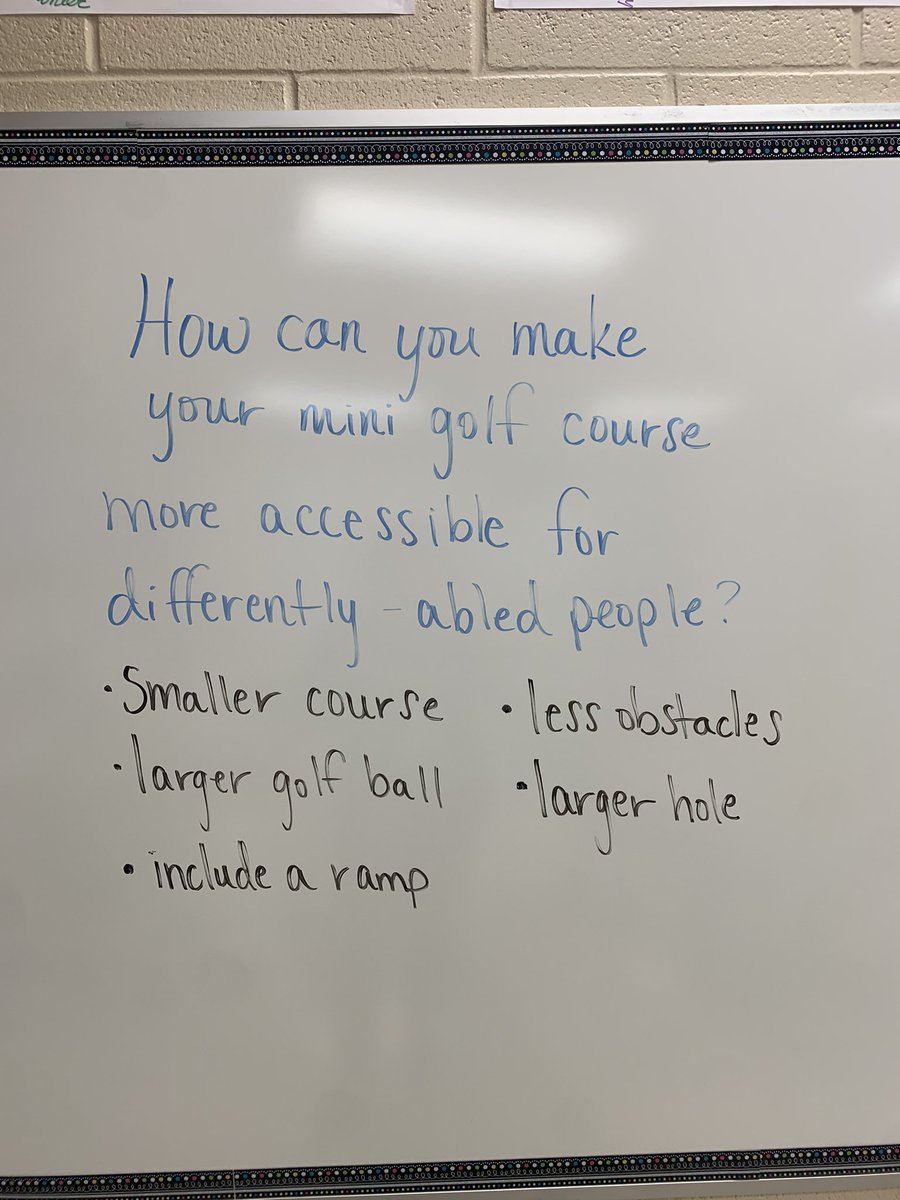 How can you make
your mini golf course
more accessible for
differently-abled people?
• Smaller course
• less obstacles
• larger golf ball
• larger hole
• include a ramp